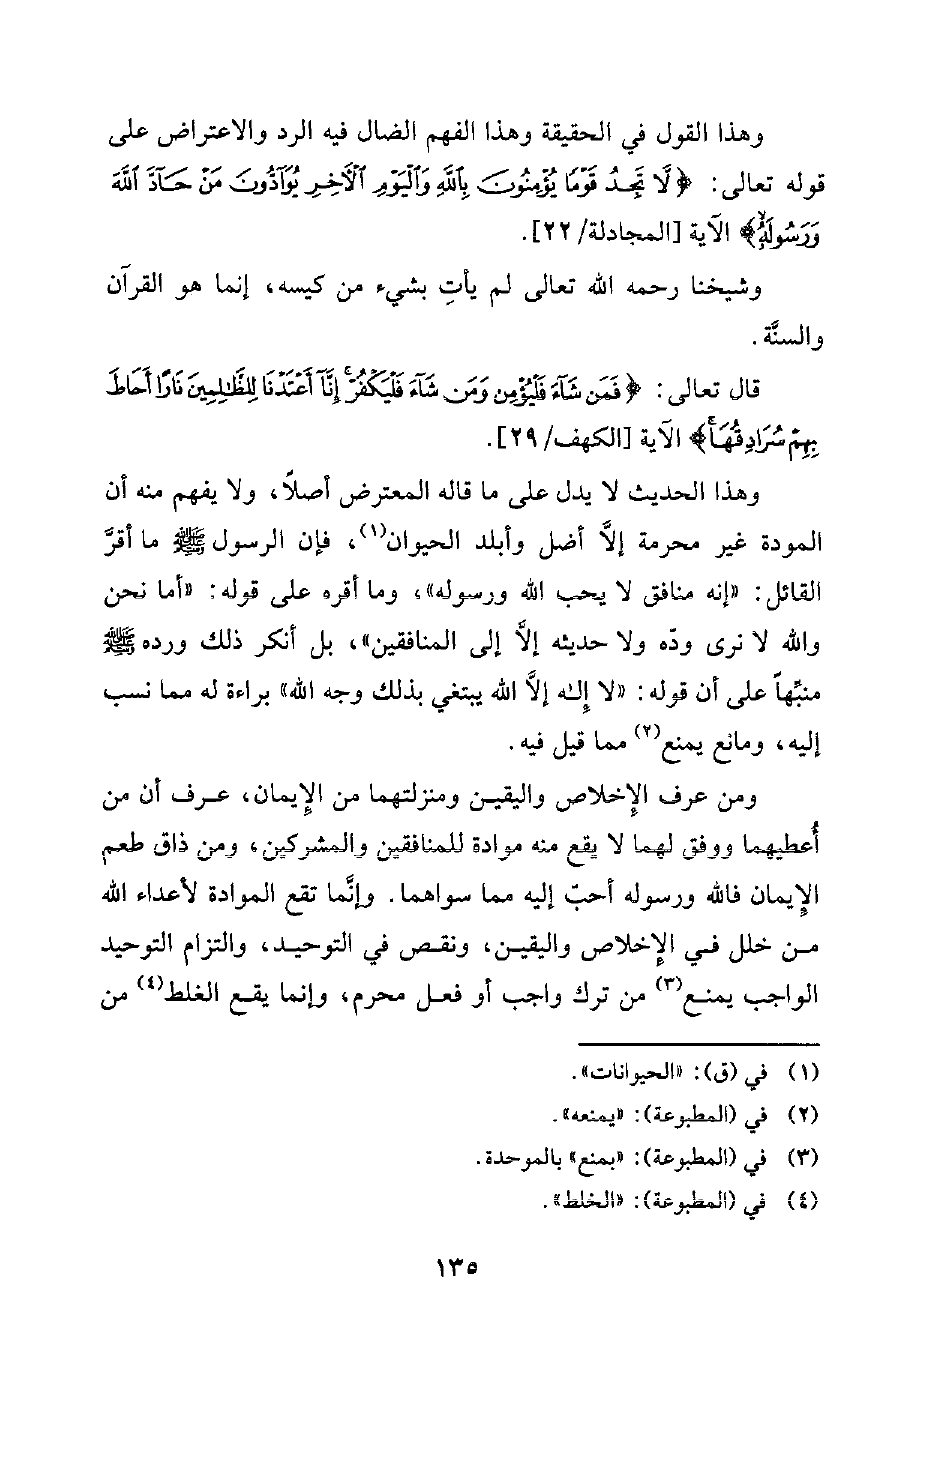 وهذا القول في الحقيقة وهذا الفهم الضال فيه الرد والاعتراض على
قوله تعالى: ﴿لَّا تَجِدُ قَوْمًا يُؤْمِنُونَ بِٱللَّهِ وَٱلْيَوْمِ ٱلْآخِرِ يُوَآدُّونَ مَنْ حَآدَّ ٱللَّهَ
وَرَسُولَهُۥ﴾ الآية [المجادلة/ ٢٢].
وشيخنا رحمه الله تعالى لم يأتِ بشيء من كيسه، إنما هو القرآن
والسنَّة.
قال تعالى: ﴿فَمَن شَآءَ فَلْيُؤْمِن وَمَن شَآءَ فَلْيَكْفُرْ ۚ إِنَّآ أَعْتَدْنَا لِلظَّٰلِمِينَ نَارًا أَحَاطَ
بِهِمْ سُرَادِقُهَا ۚ﴾ الآية [الكهف/ ٢٩].
وهذا الحديث لا يدل على ما قاله المعترض أصلاً، ولا يفهم منه أن
المودة غير محرمة إلاَّ أضل وأبلد الحيوان(١)، فإن الرسول ﷺ ما أقرَّ
القائل: «إنه منافق لا يحب الله ورسوله»، وما أقره على قوله: «أما نحن
والله لا نرى ودّه ولا حديثه إلاَّ إلى المنافقين»، بل أنكر ذلك ورده ﷺ
منبِّهاً على أن قوله: «لا إله إلاَّ الله يبتغي بذلك وجه الله» براءة له مما نسب
إليه، ومانع يمنع(٢) مما قيل فيه.
ومن عرف الإخلاص واليقين ومنزلتهما من الإيمان، عرف أن من
أُعطيهما ووفق لهما لا يقع منه موادة للمنافقين والمشركين، ومن ذاق طعم
الإيمان فالله ورسوله أحبّ إليه مما سواهما. وإنَّما تقع الموادة لأعداء الله
من خلل في الإخلاص واليقين، ونقص في التوحيد، والتزام التوحيد
الواجب يمنع(٣) من ترك واجب أو فعل محرم، وإنما يقع الغلط(٤) من
(١) في (ق): «الحيوانات».
(٢) في (المطبوعة): «يمنعه».
(٣) في (المطبوعة): «بمنع» بالموحدة.
(٤) في (المطبوعة): «الخلط».
١٣٥